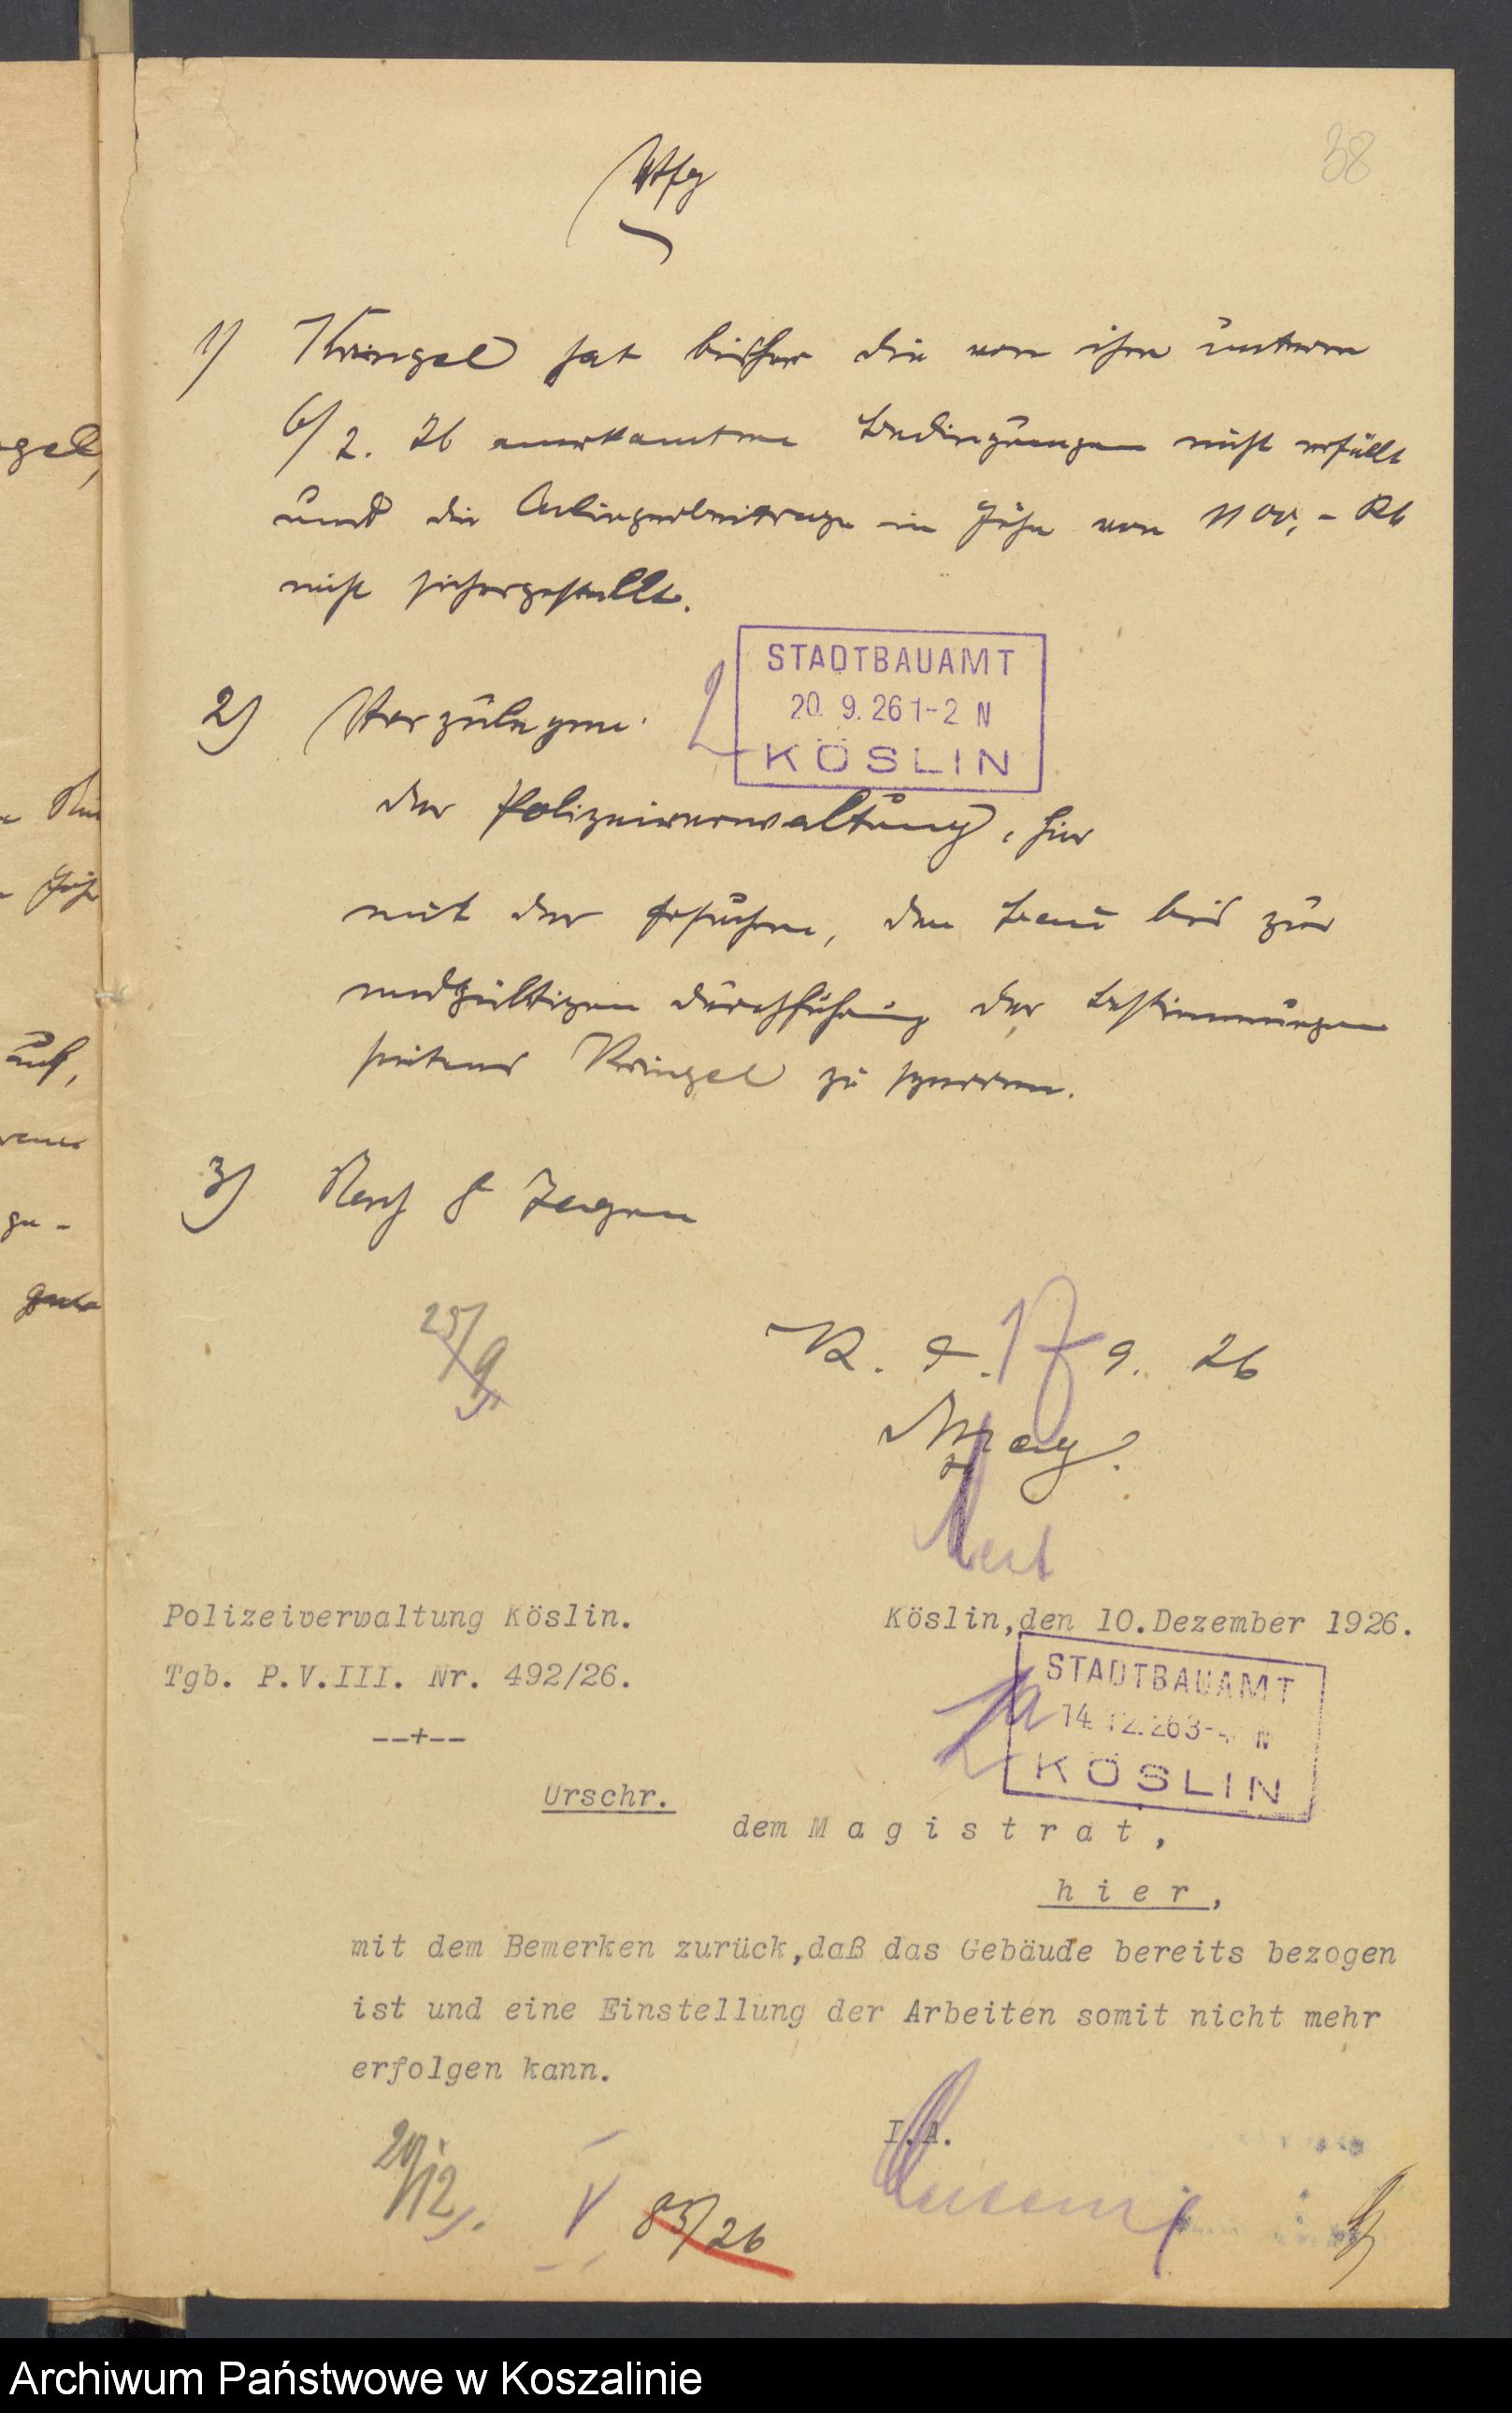 38
Vfg
1) Kringel hat bisher die von ihm unterm
6/2. 26 anerkannten Bedingungen nicht erfüllt
und die Anliegerbeiträge in Höhe von 1100,- RM
nicht sichergestellt.
STADTBAUAMT
20. 9. 26 1-2 N
KÖSLIN
2) Vorzulegen
der Polizeiverwaltung, hier
mit dem Ersuchen, den Bau bis zur
endgültigen Durchführung der Bestimmungen
seitens Kringel zu sperren.
3) Nach 8 Tagen
25/9.
K. d. 17 9. 26
Polizeiverwaltung Köslin.
Köslin,den 10.Dezember 1926.
Tgb. P.V.III. Nr. 492/26.
--+--
STADTBAUAMT
14. 12. 26 3-4 N
KÖSLIN
Urschr.
dem Magistrat,
hier,
mit dem Bemerken zurück,daß das Gebäude bereits bezogen
ist und eine Einstellung der Arbeiten somit nicht mehr
erfolgen kann.
I.A.
20/12.
V 85/26
Archiwum Państwowe w Koszalinie